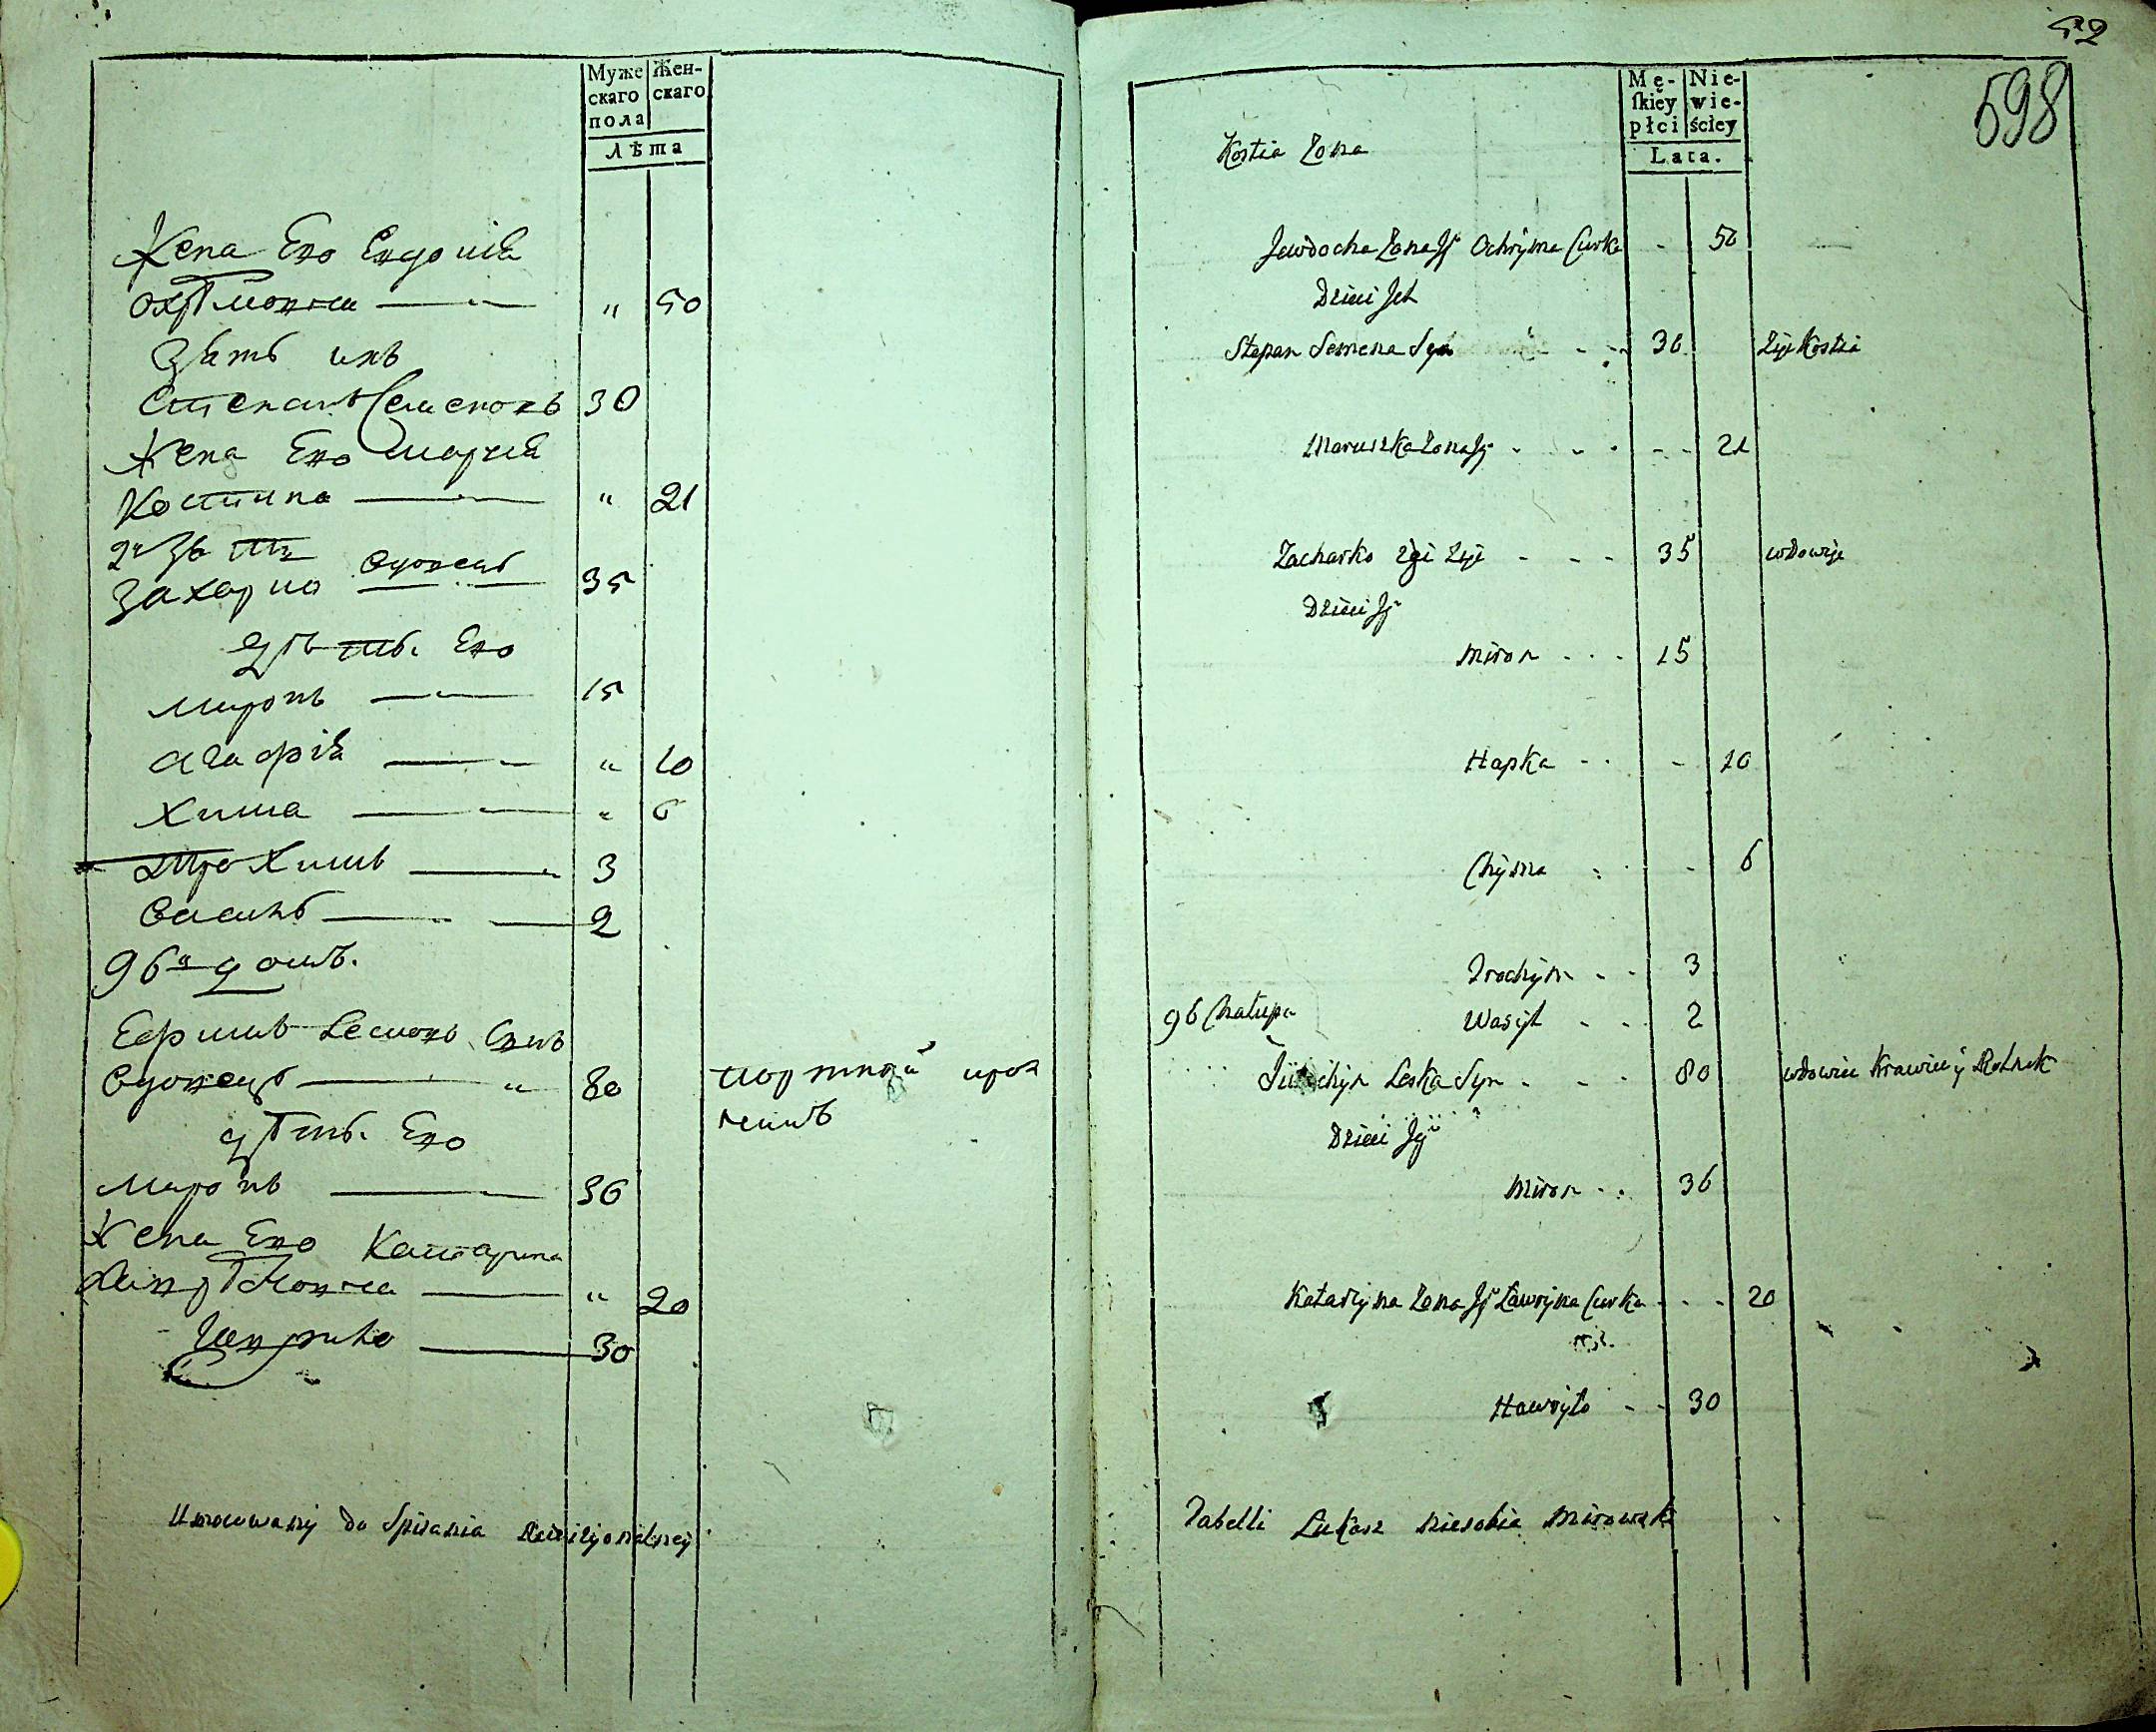 Муже Жен-
скаго скаго
пола
лѣта
Жена Его Евдокія
охрѣмова — " 50
Зять ихъ
Степанъ Семеновъ 30
Жена Его Марія
Костина — " 21
2й зять
Захарко вдовецъ 35
дѣти Его
Миронъ — 15
Агафія — " 10
Хима — " 6
Трохимъ — 3
Василь — 2
96й домъ.
Ефимъ Леско Сынъ
Вдовецъ — " 80 портной
дѣти Его
Миронъ — 36
Жена Его Катарина
Лаврѣнова — " 20
Гаврило — 30
Umocowany do Spisania Rewizyonalney
52
598
Mę- Nie-
ſkiéy wie-
płci ściey
Lata.
Kostia Zona
Jewdocha Zona Jſ Ochryma Curka - 50
Dzieci Ich
Stepan Semena Syn - - 30 Zięć Kostia
Maruszka Zona Jg - - - 21
Zacharko 2gi Zięć - - - 35 wdowiec
Dzieci Jg
Miron - - - 15
Hapka - - - 10
Chyma - - 6
Trochym - - 3
96 Chałupa Wasyl - - 2
Leska Syn - - - 80 wdowiec Krawiec y Rolnik
Dzieci Jg
Miron - - 36
Katarzyna Zona Jg Ławryna Curka - - - 20
Hawryło - - 30
Tabelli Łukasz Mirowski